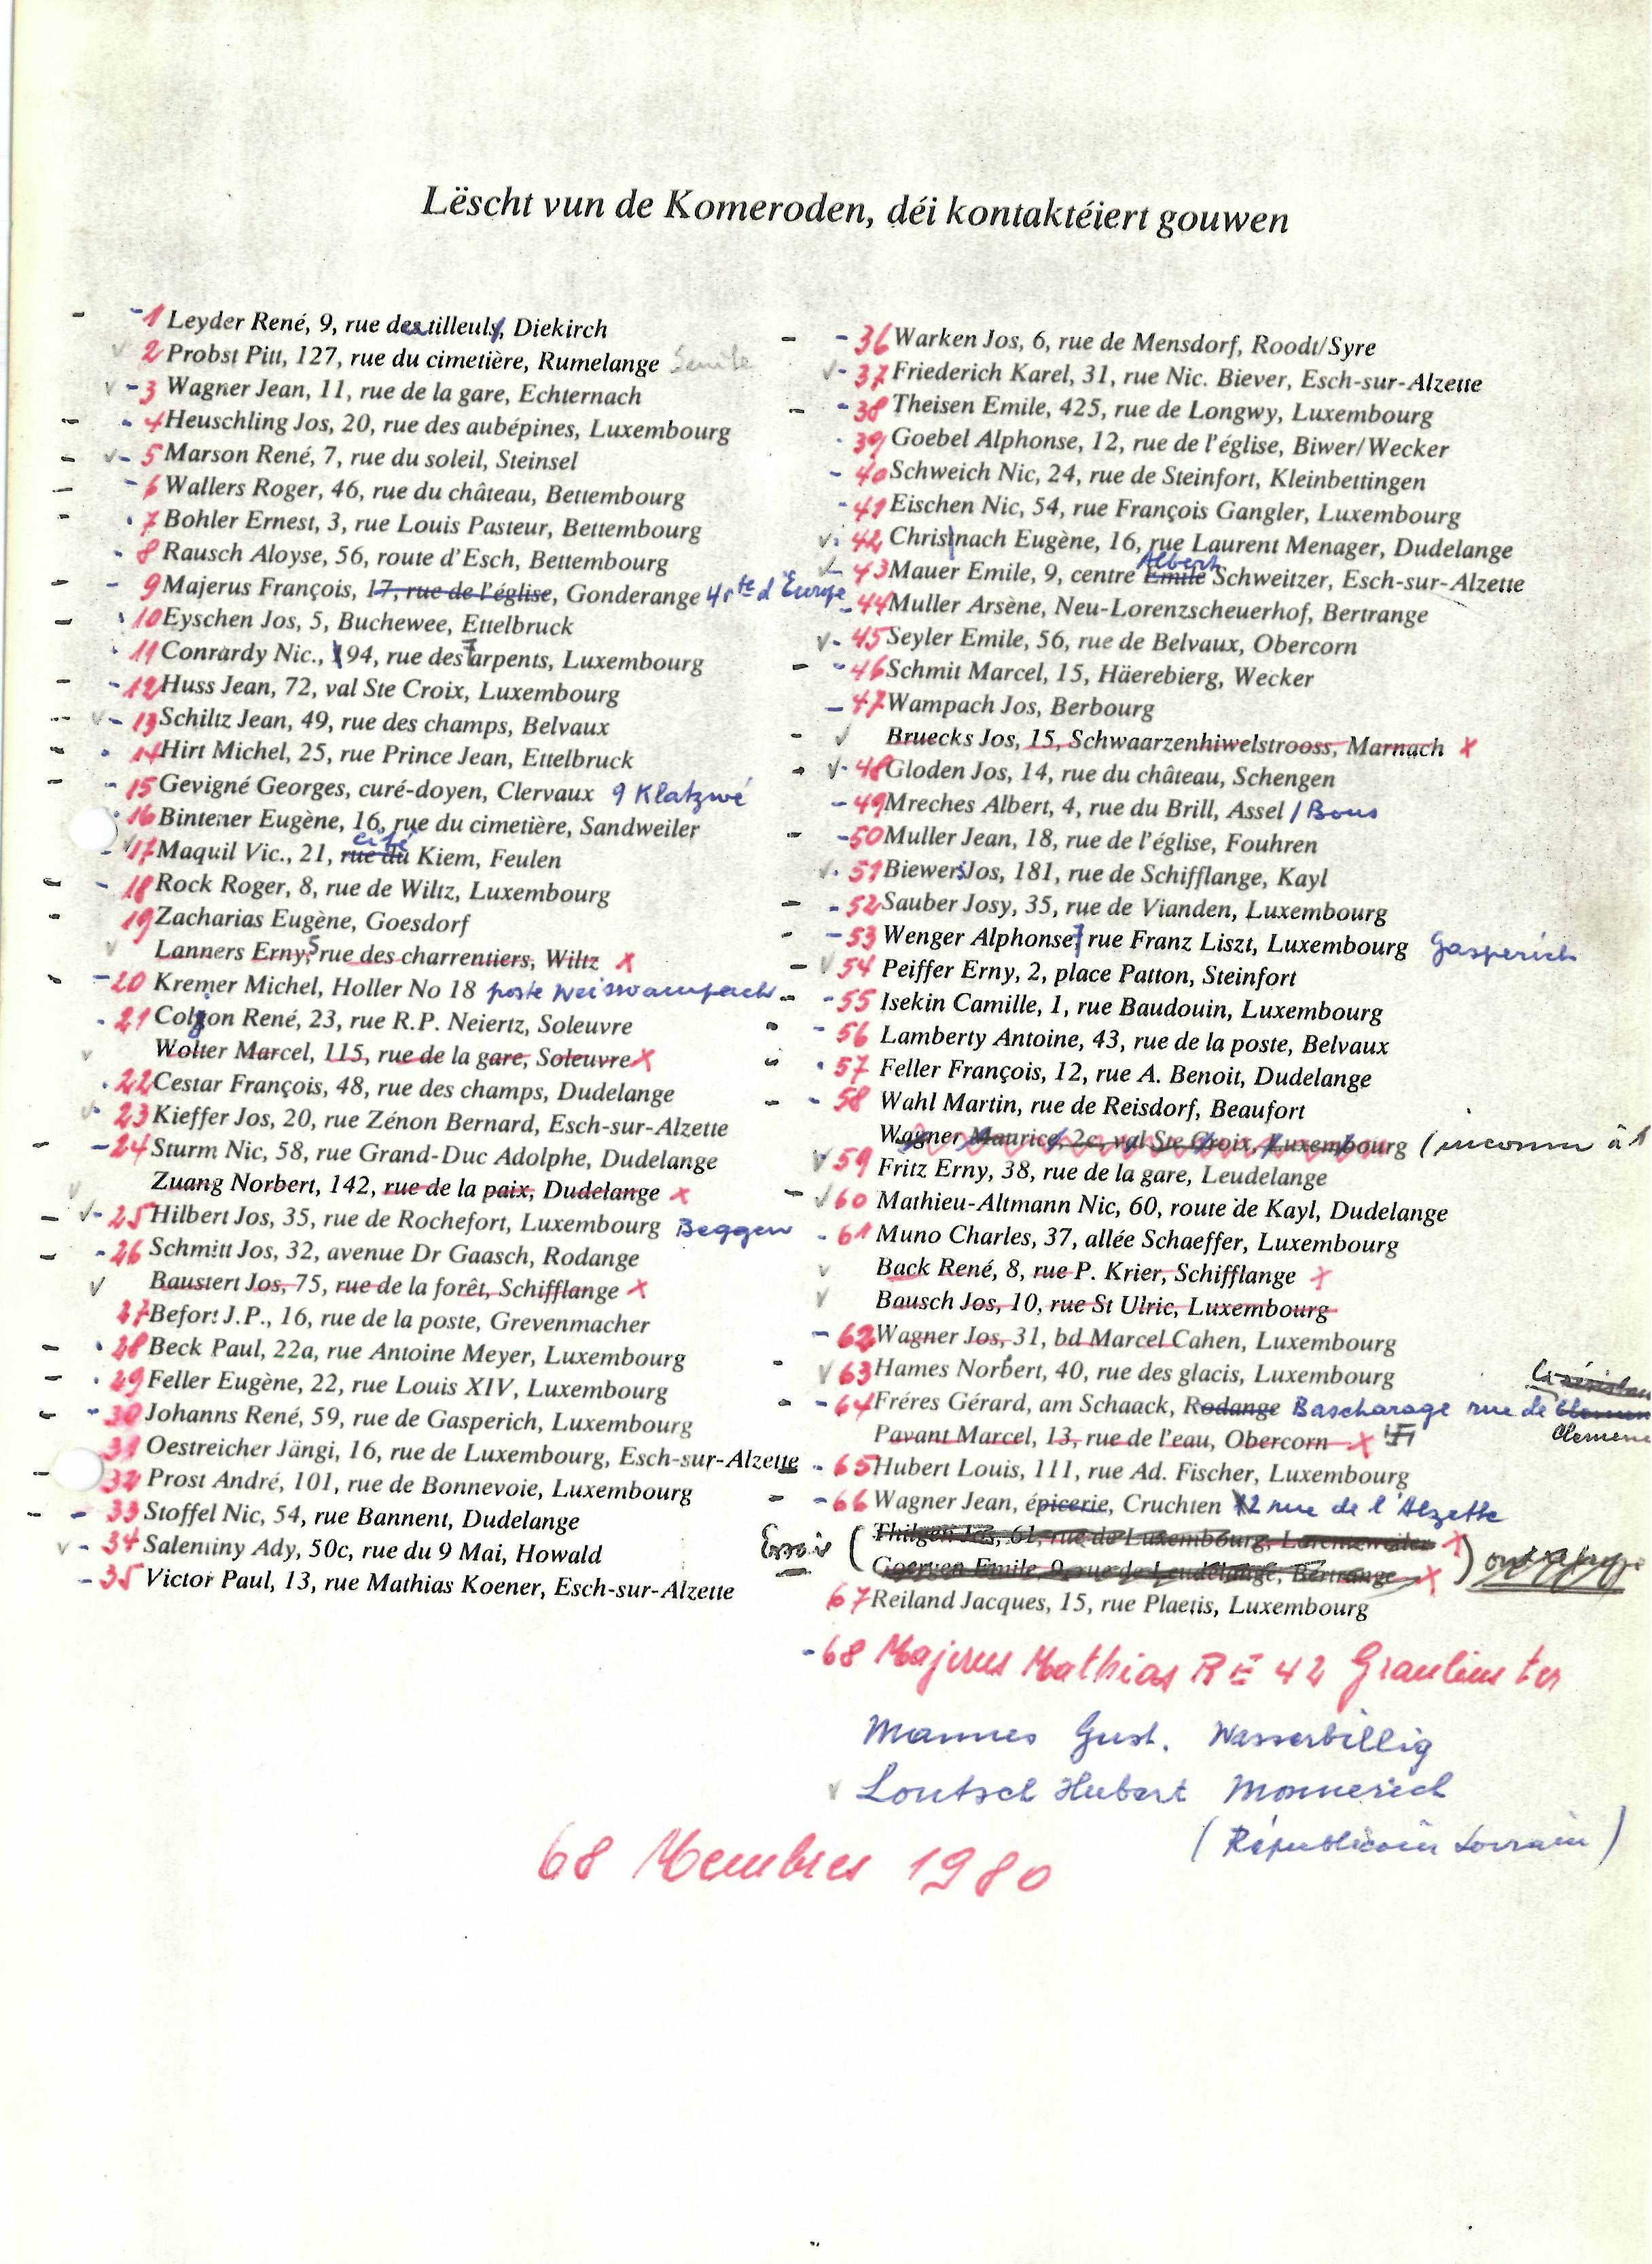 Lëscht vun de Komeroden, déi kontaktéiert gouwen
-1 Leyder René, 9, rue des tilleuls, Diekirch
2 Probst Pitt, 127, rue du cimetière, Rumelange
-3 Wagner Jean, 11, rue de la gare, Echternach
4 Heuschling Jos, 20, rue des aubépines, Luxembourg
5 Marson René, 7, rue du soleil, Steinsel
6 Wallers Roger, 46, rue du château, Bettembourg
7 Bohler Ernest, 3, rue Louis Pasteur, Bettembourg
8 Rausch Aloyse, 56, route d'Esch, Bettembourg
9 Majerus François, 17, rue de l'église, Gonderange 4 rte d'Europe
10 Eyschen Jos, 5, Buchewee, Ettelbruck
11 Conrardy Nic., 94, rue des 7 arpents, Luxembourg
12 Huss Jean, 72, val Ste Croix, Luxembourg
13 Schiltz Jean, 49, rue des champs, Belvaux
14 Hirt Michel, 25, rue Prince Jean, Ettelbruck
15 Gevigné Georges, curé-doyen, Clervaux 9 Klatzwé
16 Bintener Eugène, 16, rue du cimetière, Sandweiler
17 Maquil Vic., 21, rue du cité Kiem, Feulen
18 Rock Roger, 8, rue de Wiltz, Luxembourg
19 Zacharias Eugène, Goesdorf
Lanners Erny, 5 rue des charrentiers, Wiltz x
20 Kremer Michel, Holler No 18 poste Weiswampach
21 Coljon René, 23, rue R.P. Neiertz, Soleuvre
Wolter Marcel, 115, rue de la gare, Soleuvre x
22 Cestar François, 48, rue des champs, Dudelange
23 Kieffer Jos, 20, rue Zénon Bernard, Esch-sur-Alzette
24 Sturm Nic, 58, rue Grand-Duc Adolphe, Dudelange
Zuang Norbert, 142, rue de la paix, Dudelange x
25 Hilbert Jos, 35, rue de Rochefort, Luxembourg Beggen
26 Schmitt Jos, 32, avenue Dr Gaasch, Rodange
Baustert Jos, 75, rue de la forêt, Schifflange x
27 Befort J.P., 16, rue de la poste, Grevenmacher
28 Beck Paul, 22a, rue Antoine Meyer, Luxembourg
29 Feller Eugène, 22, rue Louis XIV, Luxembourg
30 Johanns René, 59, rue de Gasperich, Luxembourg
31 Oestreicher Jängi, 16, rue de Luxembourg, Esch-sur-Alzette
32 Prost André, 101, rue de Bonnevoie, Luxembourg
33 Stoffel Nic, 54, rue Bannent, Dudelange
34 Salentiny Ady, 50c, rue du 9 Mai, Howald
35 Victor Paul, 13, rue Mathias Koener, Esch-sur-Alzette
36 Warken Jos, 6, rue de Mensdorf, Roodt/Syre
37 Friederich Karel, 31, rue Nic. Biever, Esch-sur-Alzette
38 Theisen Emile, 425, rue de Longwy, Luxembourg
39 Goebel Alphonse, 12, rue de l'église, Biwer/Wecker
40 Schweich Nic, 24, rue de Steinfort, Kleinbettingen
41 Eischen Nic, 54, rue François Gangler, Luxembourg
42 Christnach Eugène, 16, rue Laurent Menager, Dudelange
43 Mauer Emile, 9, centre Emile Albert Schweitzer, Esch-sur-Alzette
44 Muller Arsène, Neu-Lorenzscheuerhof, Bertrange
45 Seyler Emile, 56, rue de Belvaux, Obercorn
46 Schmit Marcel, 15, Häerebierg, Wecker
47 Wampach Jos, Berbourg
Bruecks Jos, 15, Schwaarzenhiwelstrooss, Marnach x
48 Gloden Jos, 14, rue du château, Schengen
49 Mreches Albert, 4, rue du Brill, Assel / Bous
50 Muller Jean, 18, rue de l'église, Fouhren
51 Biewers Jos, 181, rue de Schifflange, Kayl
52 Sauber Josy, 35, rue de Vianden, Luxembourg
53 Wenger Alphonse, 7 rue Franz Liszt, Luxembourg Gasperich
54 Peiffer Erny, 2, place Patton, Steinfort
55 Isekin Camille, 1, rue Baudouin, Luxembourg
56 Lamberty Antoine, 43, rue de la poste, Belvaux
57 Feller François, 12, rue A. Benoit, Dudelange
58 Wahl Martin, rue de Reisdorf, Beaufort
Wagner Maurice, 2c, val Ste Croix, Luxembourg (inconnu à
59 Fritz Erny, 38, rue de la gare, Leudelange
60 Mathieu-Altmann Nic, 60, route de Kayl, Dudelange
61 Muno Charles, 37, allée Schaeffer, Luxembourg
Back René, 8, rue P. Krier, Schifflange x
Bausch Jos, 10, rue St Ulric, Luxembourg
62 Wagner Jos, 31, bd Marcel Cahen, Luxembourg
63 Hames Norbert, 40, rue des glacis, Luxembourg
64 Fréres Gérard, am Schaack, Rodange Bascharage rue de
Pavant Marcel, 13, rue de l'eau, Obercorn x
65 Hubert Louis, 111, rue Ad. Fischer, Luxembourg
66 Wagner Jean, épicerie, Cruchten 12 rue de l'Alzette
Thilgen Jos, 61, rue de Luxembourg, Lorentzweiler x
Goergen Emile, 9, rue de Leudelange, Bertrange x
67 Reiland Jacques, 15, rue Plaetis, Luxembourg
-68 Majerus Mathias RE 42 Graulinster
Mannes Gust. Wasserbillig
Loutsch Hubert Monnerich
(Républicain Lorrain)
68 Membres 1980